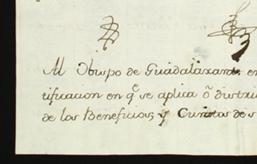 Al Obispo de Guadalaxara en
tificacion en q̃ se aplica ó distri
de los Beneficios, y Curatos de s